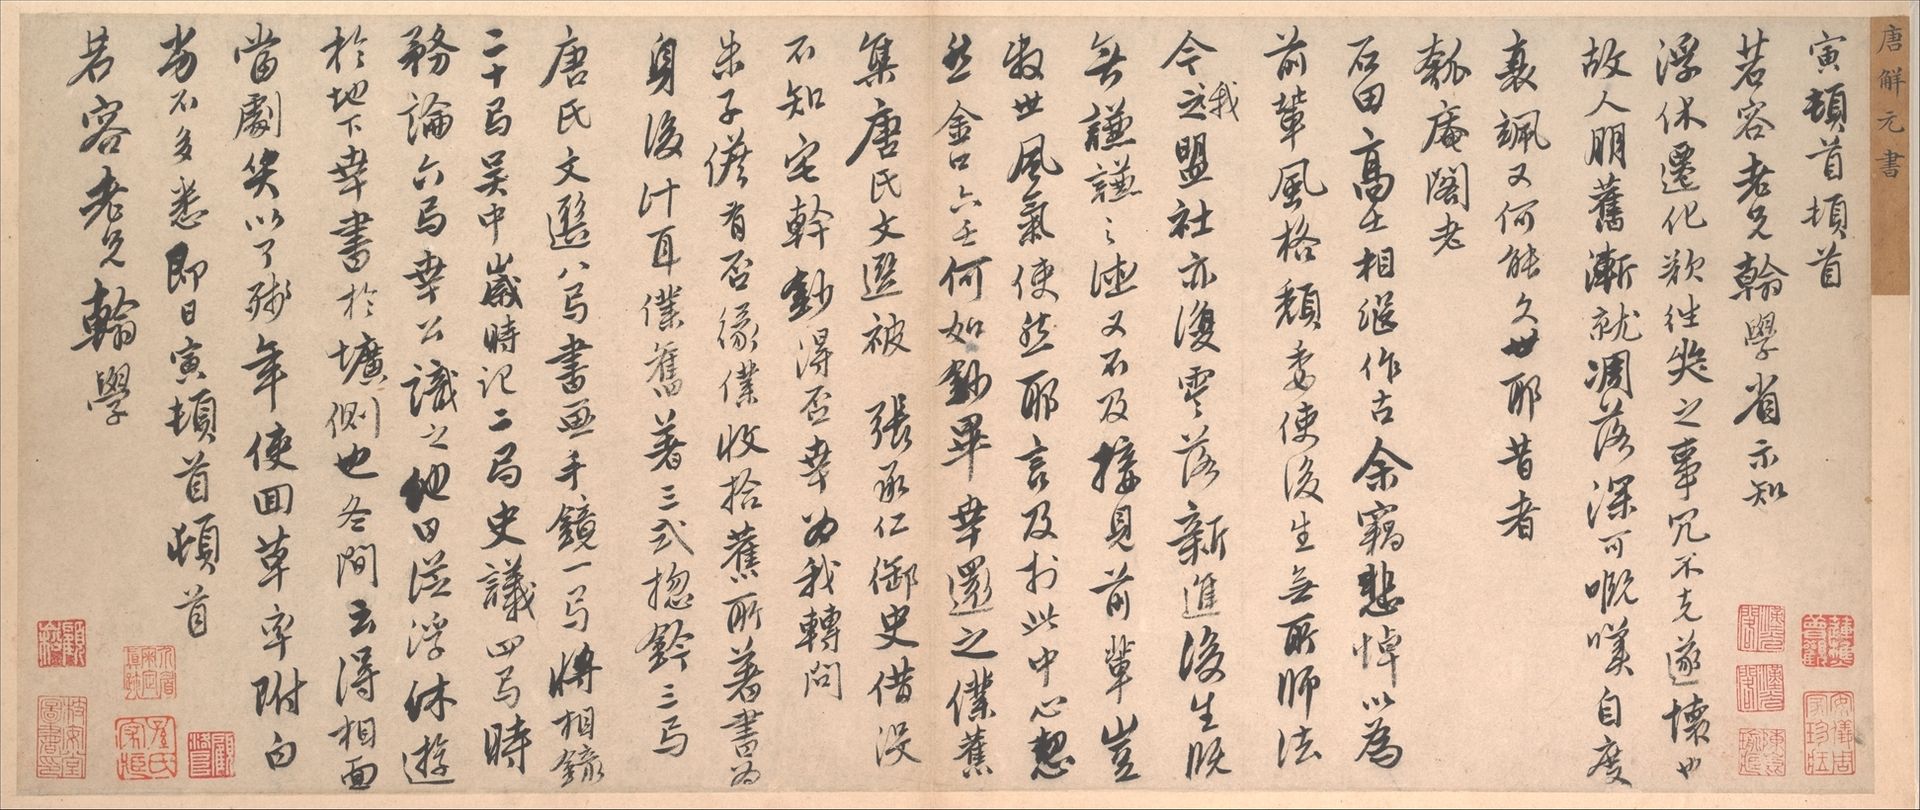 唐解元書
寅頓首頓首
若容老兄翰學省示知
浮休遷化歎往哭之事冗不克遂壞也
故人朋舊漸就凋落深可嘅嘆自度
衰颯又何能久世耶昔者
瓠庵閣老
石田高士相繼作古余竊悲悼以為
前輩風格頹委使後生無所師法
今之我盟社亦復零落新進後生既
無謙謙之德又不及接見前輩豈
教世風氣使然耶言及於此中心愬
然金口六壬何如鈔畢幸還之僕舊
集唐氏文選被 張承仁御史借沒
不知宅幹鈔得否幸為我轉問
朱子儋有否緣僕收拾舊所著書為
身後計耳僕舊著三式揔鈐三局
唐氏文選八局書畫手鏡一局將相錄
二十局吳中歲時記二局史議四局時
務論六局幸公識之他日從浮休遊
於地下幸書於壙側也冬間云得相面
當劇笑以了殘年使回草率附白
劣不多悉即日寅頓首頓首
若容老兄翰學